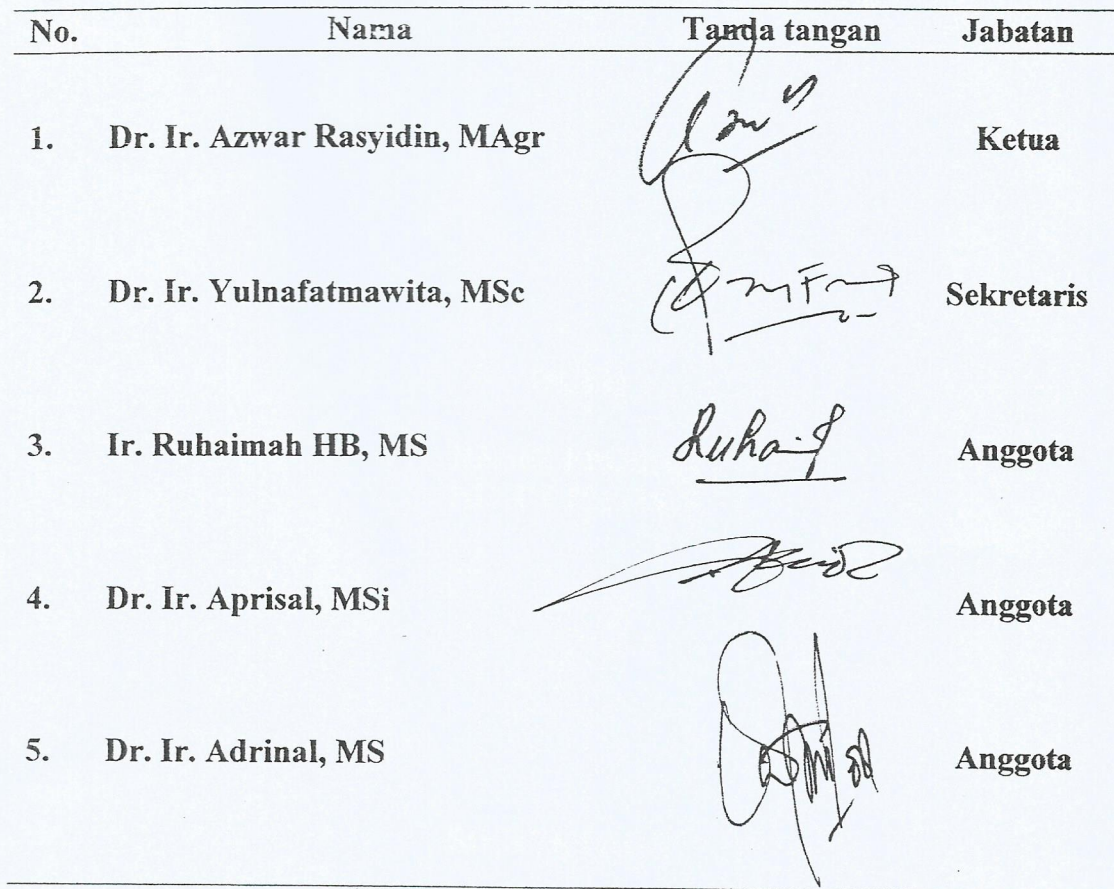 No. Nama Tanda tangan Jabatan
1. Dr. Ir. Azwar Rasyidin, MAgr Ketua
2. Dr. Ir. Yulnafatmawita, MSc Sekretaris
3. Ir. Ruhaimah HB, MS Anggota
4. Dr. Ir. Aprisal, MSi Anggota
5. Dr. Ir. Adrinal, MS Anggota